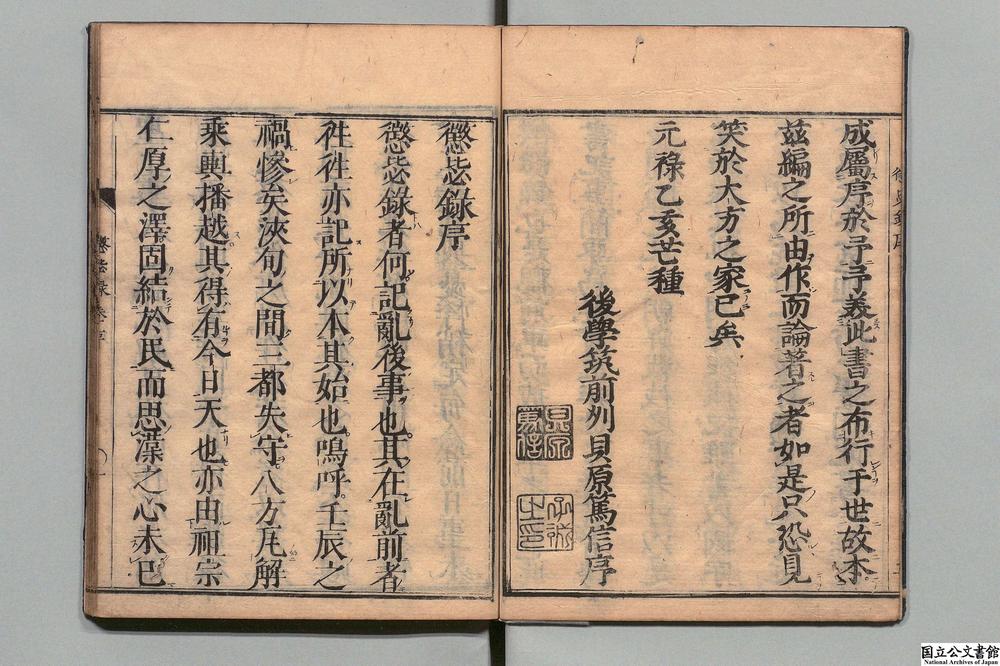 成屬序於予予義此書之布行于世故本
茲編之所由作而論著之者如是只恐見
笑於大方之家已矣
元祿乙亥芒種
後學筑前州貝原篤信序
懲毖錄序
懲毖錄者何記亂後事也其在亂前者
徃徃亦記所以本其始也嗚呼壬辰之
禍慘矣浹旬之間三都失守八方瓦解
乘輿播越其得有今日天也亦由祖宗
仁厚之澤固結於民而思漢之心未已
国立公文書館
National Archives of Japan